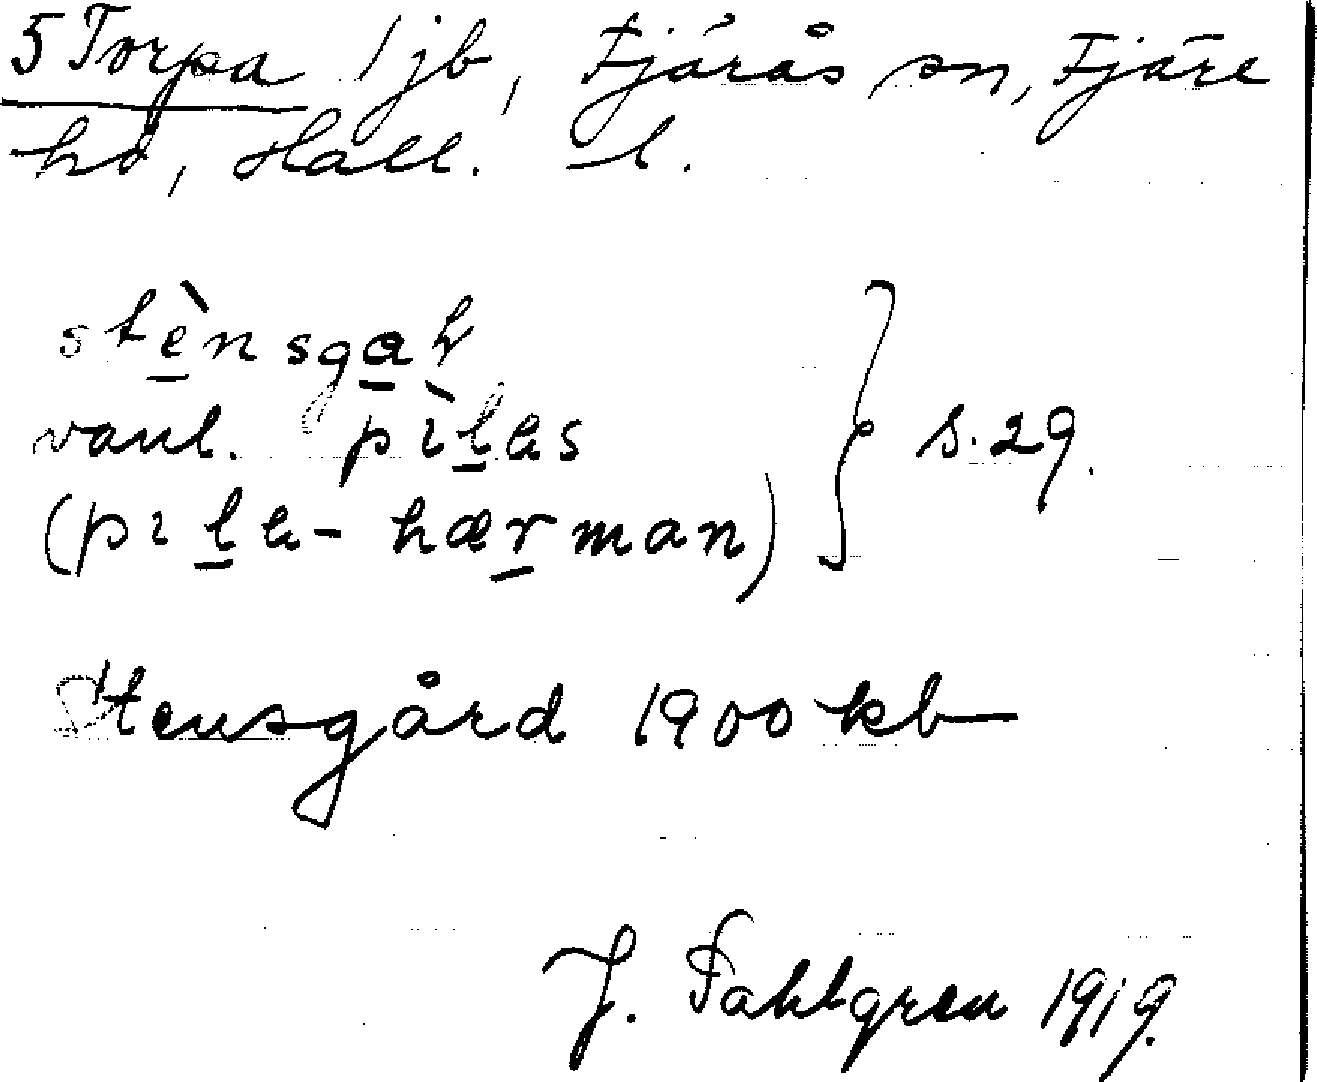 5 Torpa 1 jb, Fjärås sn, Fjäre
hd, Hall. l.
stènsgaḥ
vanl. pìlas
(pila- hærman) } s. 29.
Stensgård 1900 kb
J. Fahlgren 1919.